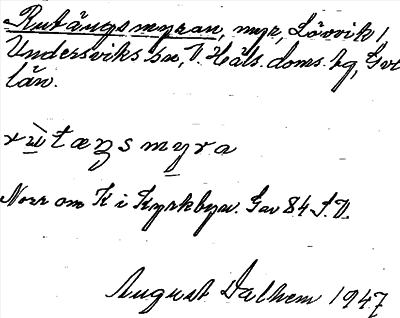 Rutängsmyran, myr, Lövvik 1
Undersviks sn, V. Häls. doms. hg, Gvl
län.
rùtæŋsmyra
Norr om K i Kyrkbyn. Gav 84 S.V.
August Dalhem 1947